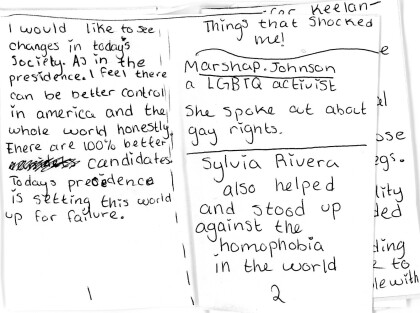 I would like to see
changes in today's
Society. As in the
presidence. I feel there
can be better control
in america and the
whole world honestly.
There are 100% better
candidates.
Todays precedence
is setting this world
up for failure.
1
Things that shocked
me!
Marsha P. Johnson
a LGBTQ activist
She spoke out about
gay rights.
Sylvia Rivera
also helped
and stood up
against the
homophobia
in the world
2